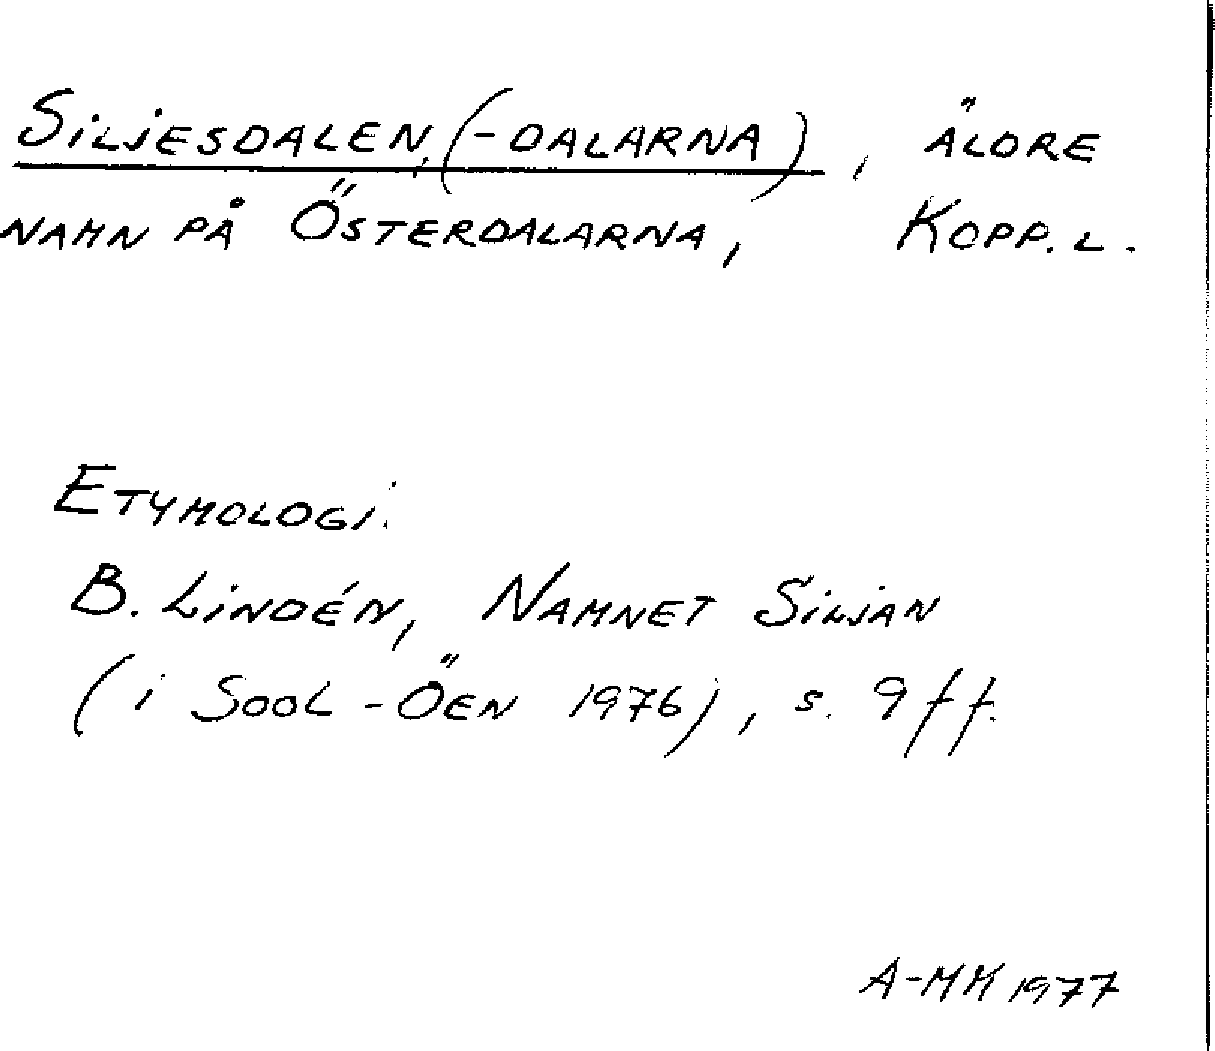 Siljesdalen, (-dalarna), äldre
namn på Österdalarna, Kopp. l.
Etymologi.
B. Lindén, Namnet Siljan
(i Sool-Öen 1976), s. 9 ff.
A-MM 1977